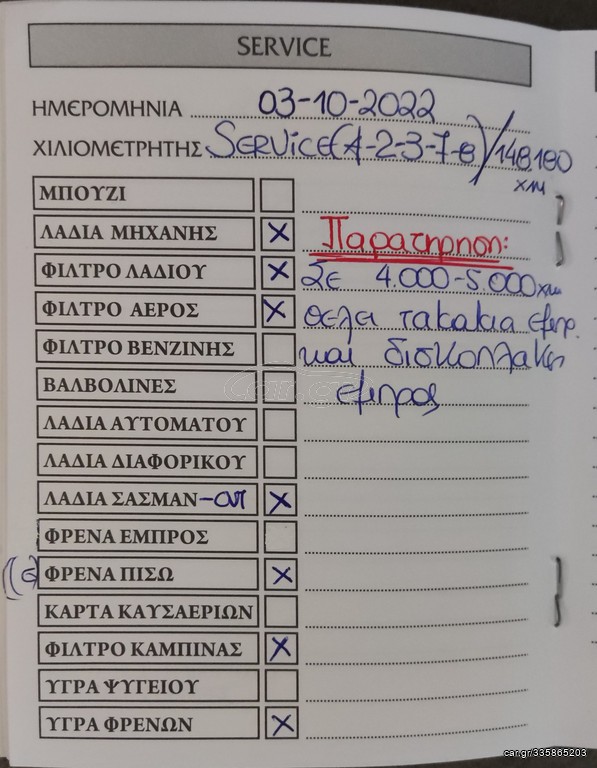 SERVICE
ΗΜΕΡΟΜΗΝΙΑ 03-10-2022
ΧΙΛΙΟΜΕΤΡΗΤΗΣ SERVICE (A-2-3-7-8) / 148180
χλμ
ΜΠΟΥΖΙ
ΛΑΔΙΑ ΜΗΧΑΝΗΣ X Παρατηρηση:
ΦΙΛΤΡΟ ΛΑΔΙΟΥ X Σε 4.000-5.000 χλμ
ΦΙΛΤΡΟ ΑΕΡΟΣ X θελει τακακια εμπρ.
ΦΙΛΤΡΟ ΒΕΝΖΙΝΗΣ και δισκοπλακες
ΒΑΛΒΟΛΙΝΕΣ εμπρος
ΛΑΔΙΑ ΑΥΤΟΜΑΤΟΥ
ΛΑΔΙΑ ΔΙΑΦΟΡΙΚΟΥ
ΛΑΔΙΑ ΣΑΣΜΑΝ X
ΦΡΕΝΑ ΕΜΠΡΟΣ
ΦΡΕΝΑ ΠΙΣΩ X
ΚΑΡΤΑ ΚΑΥΣΑΕΡΙΩΝ
ΦΙΛΤΡΟ ΚΑΜΠΙΝΑΣ X
ΥΓΡΑ ΨΥΓΕΙΟΥ
ΥΓΡΑ ΦΡΕΝΩΝ X
car.gr/335865203